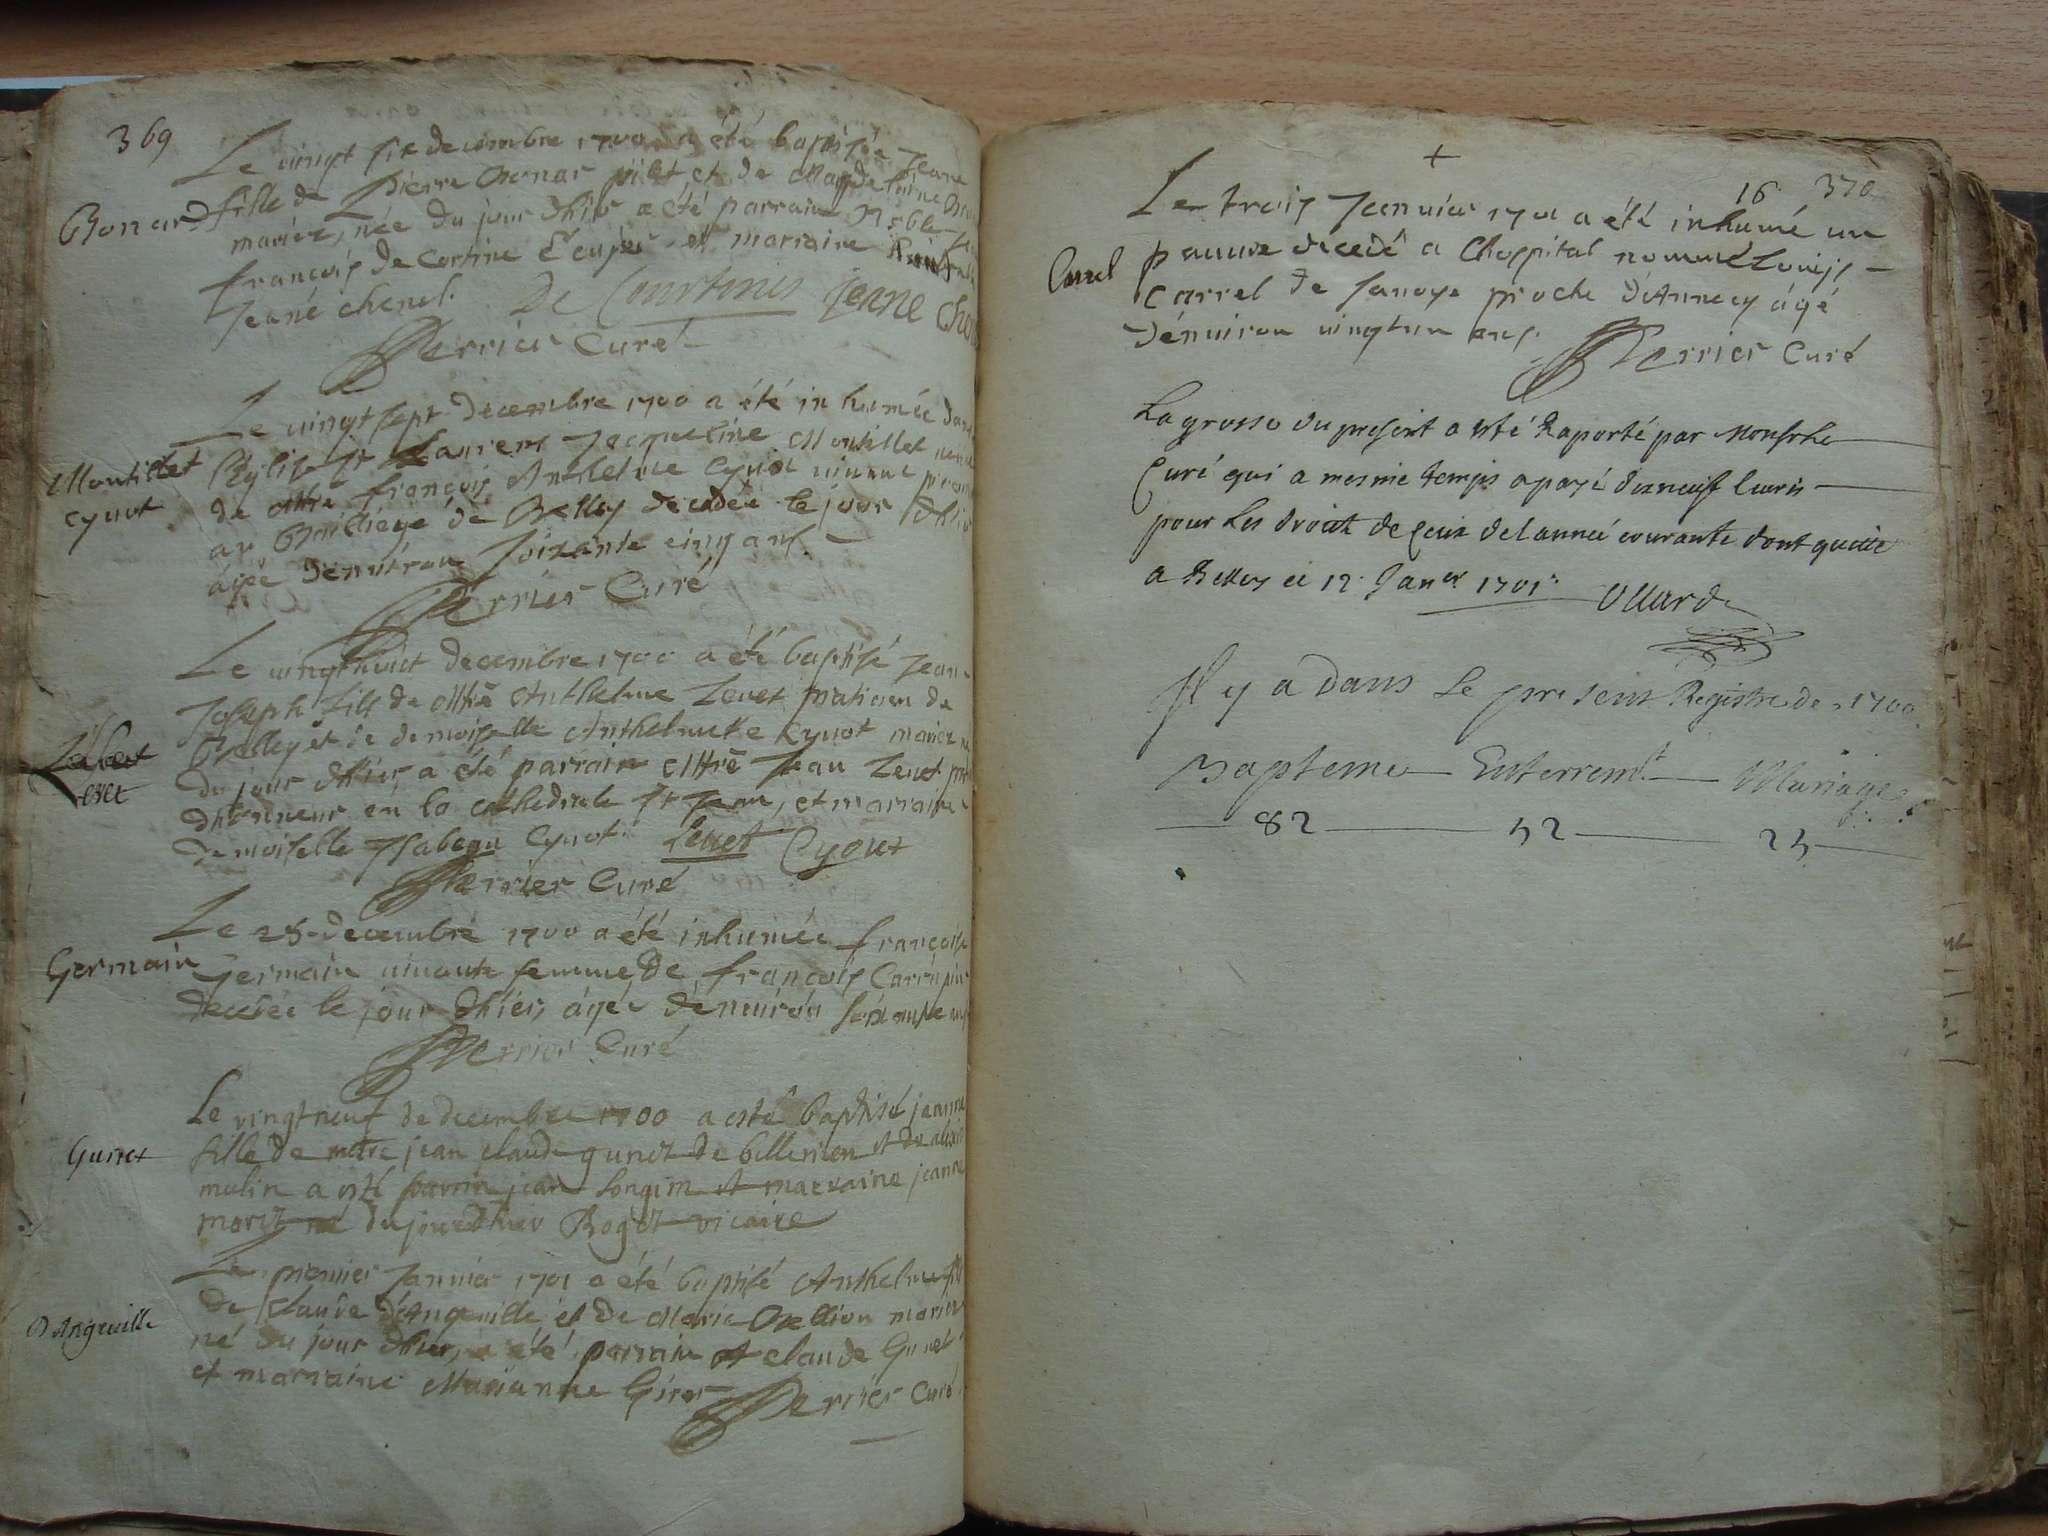 369
Le vingt six decembre 1700 a été baptisée Jeane
Bonard
fille de Pierre Bonar et de Magdeleine
mariez, née du jour d'hier a été parrain Noble
françois de Cortine Ecuyer et marraine
Jeane chenel. De Courtines Jeane
Perrier Curé
Le vingt sept decembre 1700 a été inhumée dans
Montillet
cynot
l'Eglise St Laurent Jacqueline Montillet
de Mtre françois Anthelme Cynot vivant
au Bailliage de Belley decedée le jour d'hier
agée d'environ soixante cinq ans.
Perrier Curé
Le vingt huict decembre 1700 a été baptisé Jean
Joseph fils de Mtre Anthelme Levet praticien de
Belley et de demoiselle Anthelmette Cynot mariez
Levet
du jour d'hier, a été parrain Mtre Jean Levet
d'honneur en la cathedrale St Jean, et marraine
demoiselle Isabeau Cynot. Levet Cynot
Perrier Curé
Le 28 decembre 1700 a été inhumée françoise
Germain
Germain vivante femme de françois
decedée le jour d'hier, âgée d'environ
Perrier Curé
Le vingt neuf de decembre 1700 a esté baptisé jeanne
Gunet
fille de mtre jean claude gunet de billerien et de
mulin a esté parrin jean longin et marraine jeanne
moret né du jour d'hier Roget vicaire
Le premier Janvier 1701 a été baptisé Anthelme fils
D'Angeville
de Claude D'Angeville et de Marie Bellion mariez
né du jour d'hier, a été parrain claude Gunet
et marraine Marianne Giret Perrier Curé
+
16 370
Le trois Janvier 1701 a été inhumé un
Carrel
pauvre decedé a l'hospital nommé Louis
Carrel de Savoye proche d'Annecy âgé
d'environ vingt un ans.
Perrier Curé
La grosse du present a esté Raporté par Monsr le
Curé qui a mesme temps a payé dixneuf livres
pour les droits de ceux de l'année courante dont quitte
a Belley ce 12. Janer 1701.
Il y a dans le present Registre de 1700
Baptemes Enterremt Mariages
82 52 23